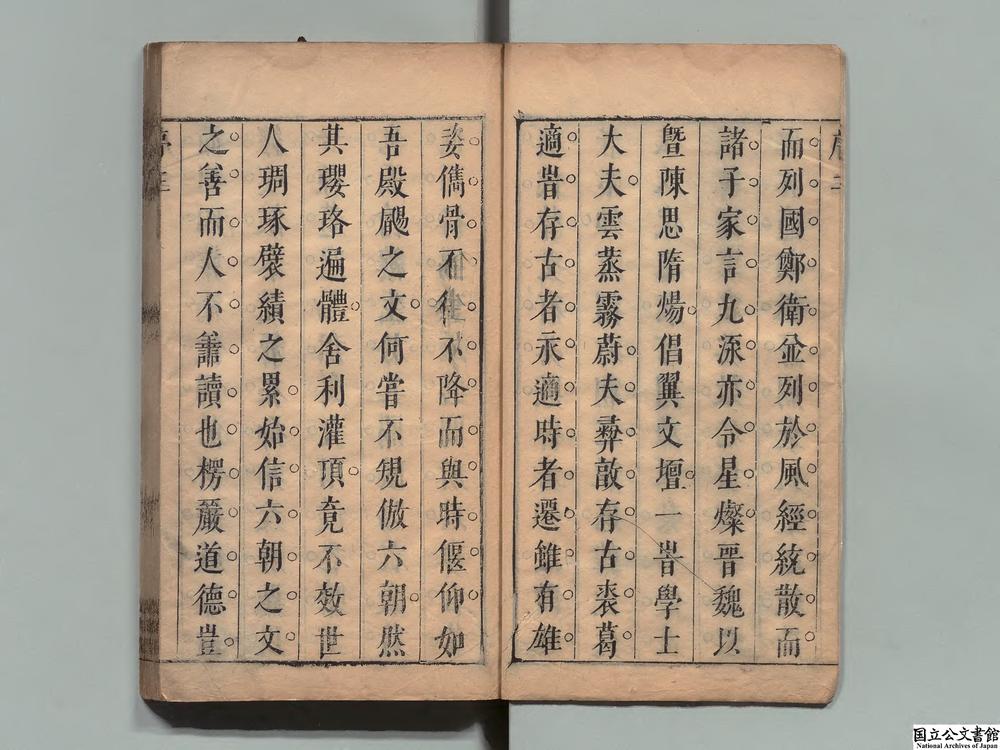 序二
而列國鄭衛並列於風經統散而
諸子家言九流亦令星燦晉魏以
曁陳思隋煬倡翼文壇一旹學士
大夫雲蒸霧蔚夫彞敦存古裘葛
適旹存古者永適時者遷雖有雄
姿儁骨不能不降而與時偃仰如
吾殿颺之文何嘗不規倣六朝然
其瓔珞遍體舍利灌頂竟不效世
人琱琢襞績之累始信六朝之文
之善而人不譱讀也楞嚴道德豈
序三
国立公文書館
National Archives of Japan